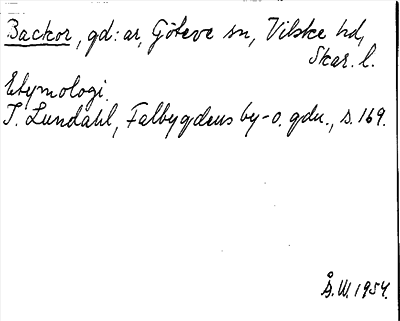 Backor, gd:ar, Göteve sn, Vilske hd,
Skar. l.
Etymologi.
I. Lundahl, Falbygdens by- o. gdn., s. 169.
Å. W. 1954.